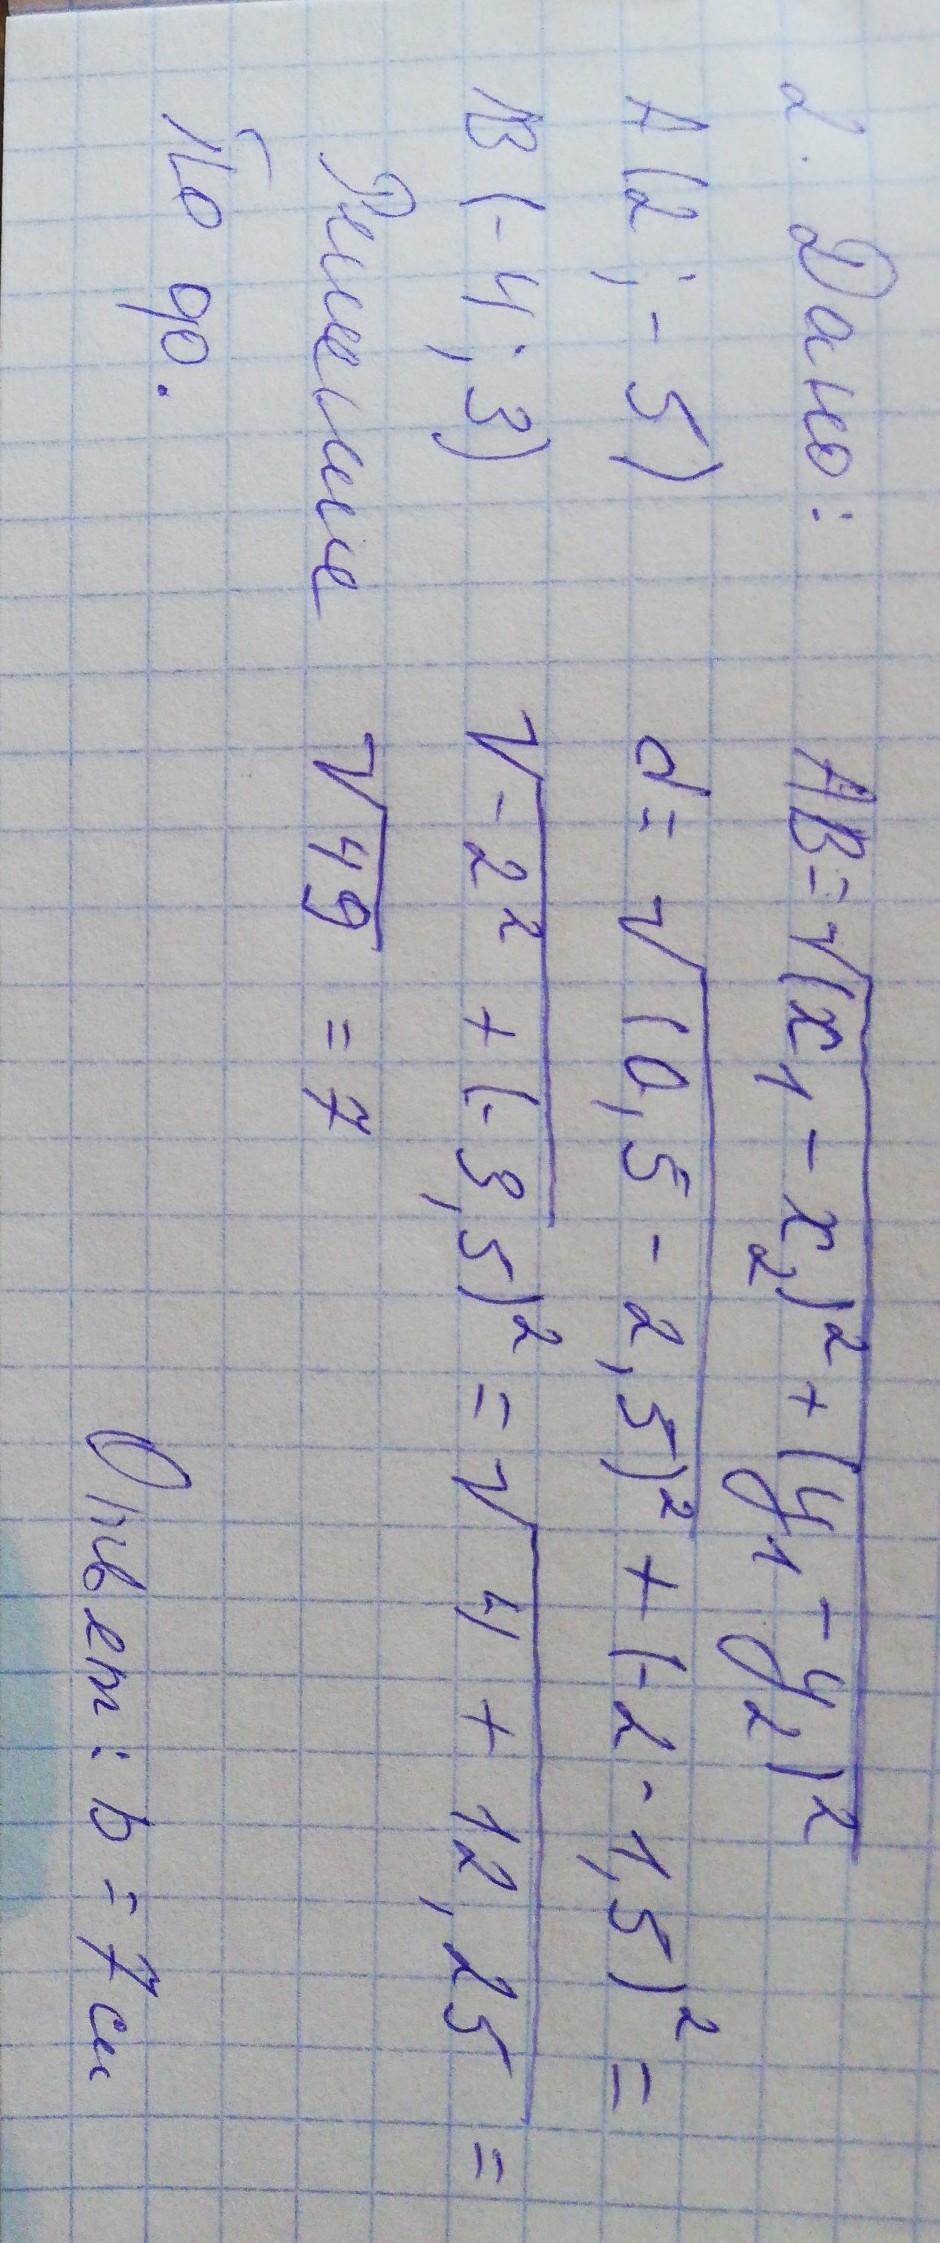 2. Дано:
A(2; -5)
B(-4; 3)
Решение
По фо.
AB = √(x₁ - x₂)² + (y₁ - y₂)²
d = √(0,5 - 2,5)² + (-2 - 1,5)² =
√-2² + (-3,5)² = √4 + 12,25 =
√49 = 7
Ответ: b = 7 см